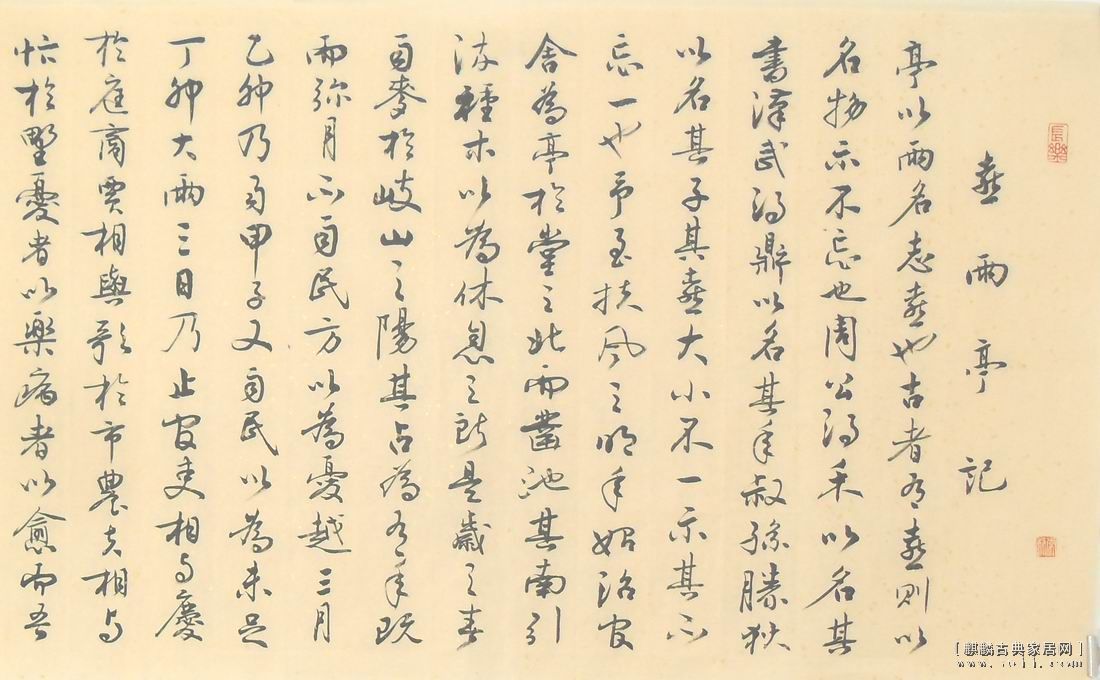 長樂
喜雨亭記
亭以雨名志喜也古者有喜則以
名物示不忘也周公得禾以名其
書漢武得鼎以名其年叔孫勝狄
以名其子其喜大小不一示其不
忘一也予至扶風之明年始治官
舍為亭於堂之北而鑿池其南引
流種木以為休息之所是歲之春
雨麥於岐山之陽其占為有年既
而彌月不雨民方以為憂越三月
乙卯乃雨甲子又雨民以為未足
丁卯大雨三日乃止官吏相与慶
於庭商賈相與歌於市農夫相与
忭於野憂者以樂病者以愈而吾
[麒麟古典家居网]